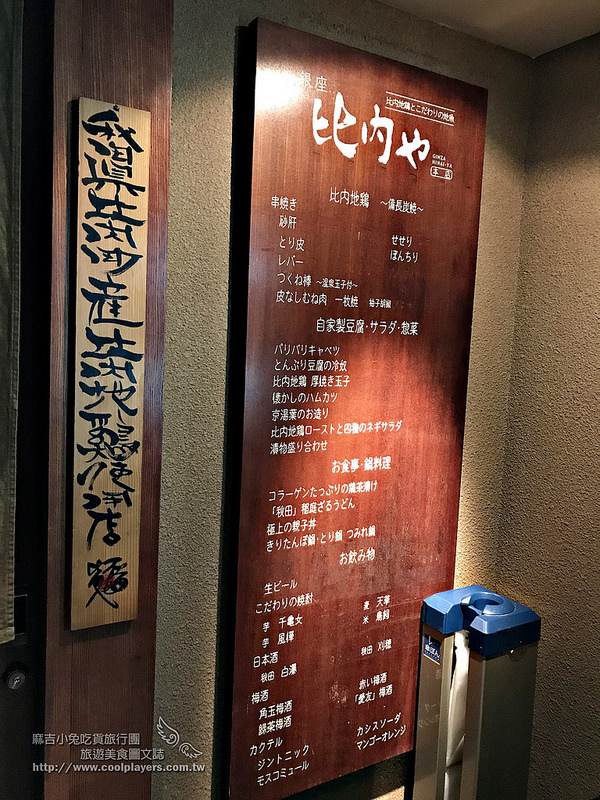 銀座
比内地鶏とこだわりの地魚
比内や
GINZA
HINAI-YA
本店
比内地鶏 ～備長炭焼～
串焼き
砂肝
とり皮 せせり
レバー ぼんちり
つくね棒 ～温泉玉子付～
皮なしむね肉 一枚焼 柚子胡椒
自家製豆腐・サラダ・惣菜
パリパリキャベツ
とんぶり豆腐の冷奴
比内地鶏 厚焼き玉子
懐かしのハムカツ
京湯葉のお造り
比内地鶏ローストと四種のネギサラダ
漬物盛り合わせ
お食事・鍋料理
コラーゲンたっぷりの鶏茶漬け
「秋田」稲庭ざるうどん
極上の親子丼
きりたんぽ鍋・とり鍋 つみれ鍋
お飲み物
生ビール
こだわりの焼酎
芋 千亀女 麦 天草
芋 風憚 米 鳥飼
日本酒
秋田 白瀑 秋田 刈穂
梅酒
角玉梅酒 赤い梅酒
緑茶梅酒 「愛友」梅酒
カクテル
ジントニック カシスソーダ
モスコミュール マンゴーオレンジ
県比内町産比内地鶏使用店
麻吉小兔吃貨旅行團
旅遊美食圖文誌
http://www.coolplayers.com.tw